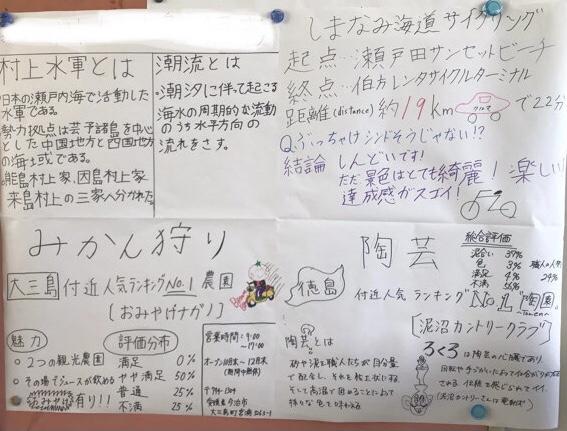 村上水軍とは
日本の瀬戸内海で活動した
水軍である。
勢力拠点は芸予諸島を中心
とした中国地方と四国地方
の海域である。
能島村上家、因島村上家
来島村上の三家へ分かれた
潮流とは
・潮汐に伴って起こる
海水の周期的な流動
のうち水平方向の
流れをさす。
しまなみ海道サイクリング
起点…瀬戸田サンセットビーチ
終点…伯方レンタサイクルターミナル
距離(distance)約19km クルマ で22分
Q.ぶっちゃけシンドそうじゃない!?
結論 しんどいです!
ただ景色はとても綺麗!楽しい!
達成感がスゴイ!
みかん狩り
大三島 付近人気ランキングNo.1 農園
[おみやげナガノ]
魅力
○2つの観光農園
○その場でジュースが飲める
有り!!
評価分布
満足 0%
やや満足 50%
普通 25%
不満 25%
営業時間:9:00
~17:00
オープン10月末~12月末
(期間中無休)
〒794-1304
愛媛県今治市
大三島町宮浦5263-1
陶芸
総合評価
泥合い 37%
色 3%
満足 4%
不満 56%
職人の人柄
24%
徳島
付近人気 ランキング No.1 『陶園』
[泥沼カントリークラブ]
陶芸とは
砂や泥を職人たちが自分量
で配合し、それを粘土状にする
そして高温で固めることにおいて
様々な色で味わえる
ろくろは陶芸の心臓であり